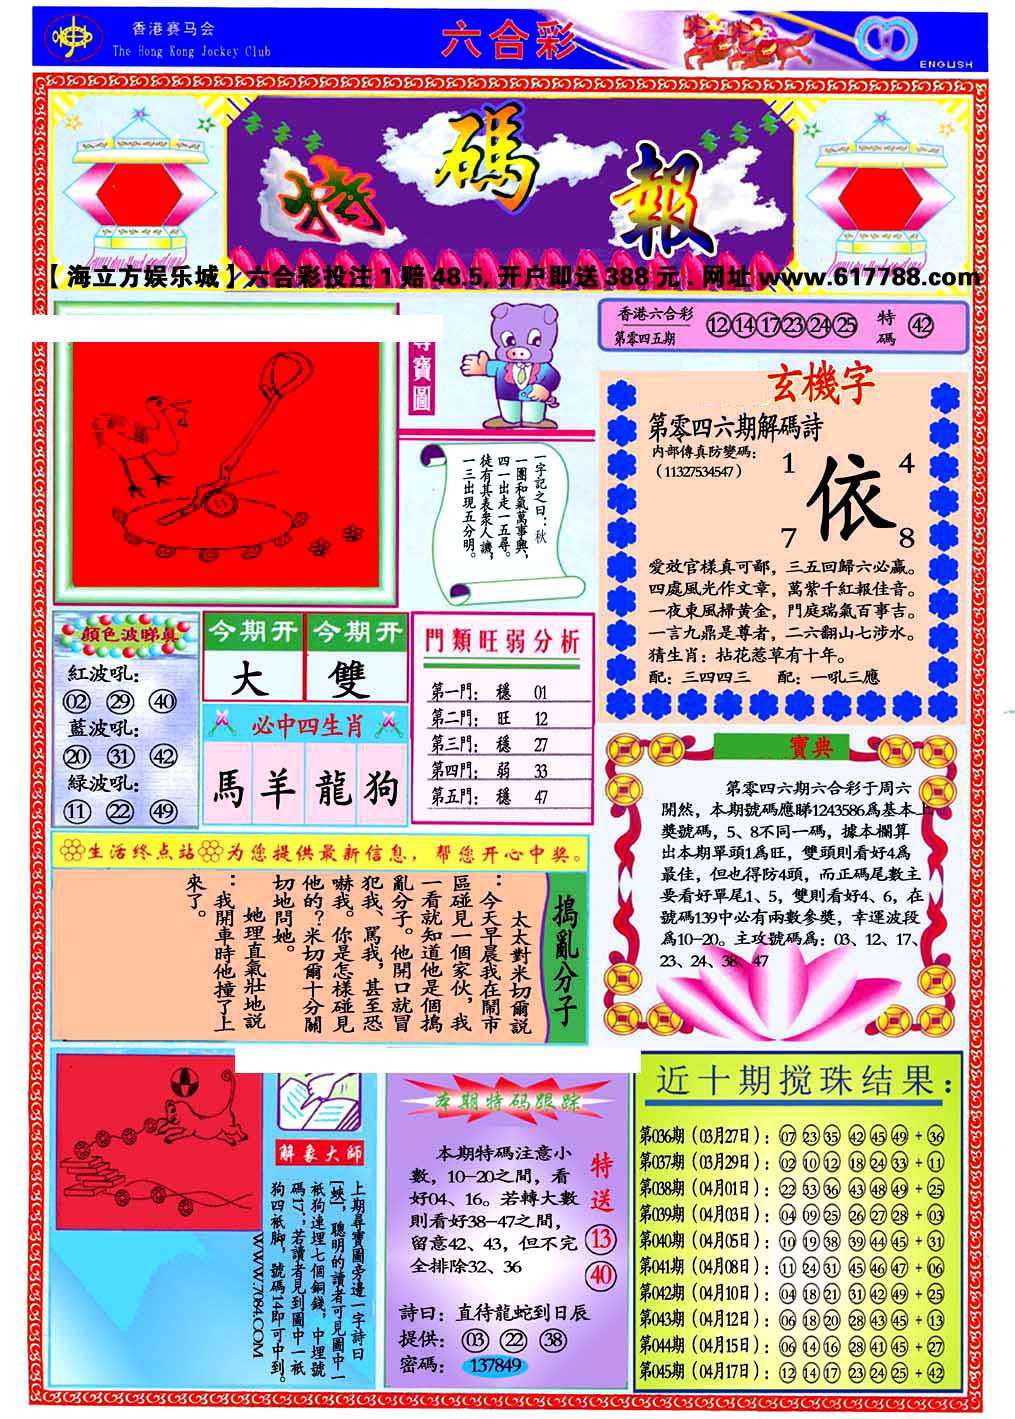 香港赛马会
The Hong Kong Jockey Club
六合彩
ENGLISH
特碼報
【海立方娱乐城】六合彩投注1赔48.5,开户即送388元.网址www.617788.com
寶圖
一字記之曰：秋
一團和氣萬事興，
四一出走一五尋。
徒有其表衆人譏，
一三出現五分明。
香港六合彩
第零四五期
12 14 17 23 24 25
特碼
42
玄機字
第零四六期解碼詩
内部傳真防變碼：
（11327534547）
1 4
依
7 8
愛效官樣真可鄙，三五回歸六必贏。
四處風光作文章，萬紫千紅報佳音。
一夜東風掃黃金，門庭瑞氣百事吉。
一言九鼎是尊者，二六翻山七涉水。
猜生肖：拈花惹草有十年。
配：三四四三 配：一吼三應
顔色波睇真
紅波吼：
02 29 40
藍波吼：
20 31 42
緑波吼：
11 22 49
今期开 今期开
大 雙
必中四生肖
馬 羊 龍 狗
門類旺弱分析
第一門： 穩 01
第二門： 旺 12
第三門： 穩 27
第四門： 弱 33
第五門： 穩 47
寶典
第零四六期六合彩于周六
開然，本期號碼應睇1243586爲基本上
獎號碼，5、8不同一碼，據本欄算
出本期單頭1爲旺，雙頭則看好4爲
最佳，但也得防4頭，而正碼尾數主
要看好單尾1、5，雙則看好4、6，在
號碼139中必有兩數參獎，幸運波段
爲10-20。主攻號碼爲：03、12、17、
23、24、38、47
生活终点站 为您提供最新信息，帮您开心中奖。
搗亂分子
太太對米切爾説
：今天早晨我在鬧市
區碰見一個家伙，我
一看就知道他是個搗
亂分子。他開口就冒
犯我、罵我，甚至恐
嚇我。你是怎樣碰見
他的？米切爾十分關
切地問她。
她理直氣壯地説
：我開車時他撞了上
來了。
解象大師
上期尋寶圖旁邊一字詩曰
【蛺】，聰明的讀者可見圖中一
衹狗連埋七個銅錢，中埋號
碼17，若讀者見到圖中一衹
狗四衹脚，號碼14即可中到。
WWW.7084.COM
本期特码跟踪
本期特碼注意小
數，10-20之間，看
好04、16。若轉大數
則看好38-47之間，
留意42、43，但不完
全排除32、36
特送
13
40
詩曰：直待龍蛇到日辰
提供：03 22 38
密碼：137849
近十期搅珠结果：
第036期（03月27日）：07 23 35 42 45 49 + 36
第037期（03月29日）：02 10 12 18 24 33 + 11
第038期（04月01日）：22 33 36 43 48 49 + 25
第039期（04月03日）：04 09 25 26 27 28 + 03
第040期（04月05日）：10 19 38 39 44 45 + 31
第041期（04月08日）：11 24 31 45 46 47 + 06
第042期（04月10日）：04 18 21 31 42 49 + 25
第043期（04月12日）：06 18 20 28 43 45 + 13
第044期（04月15日）：06 14 16 28 41 45 + 27
第045期（04月17日）：12 14 17 23 24 25 + 42